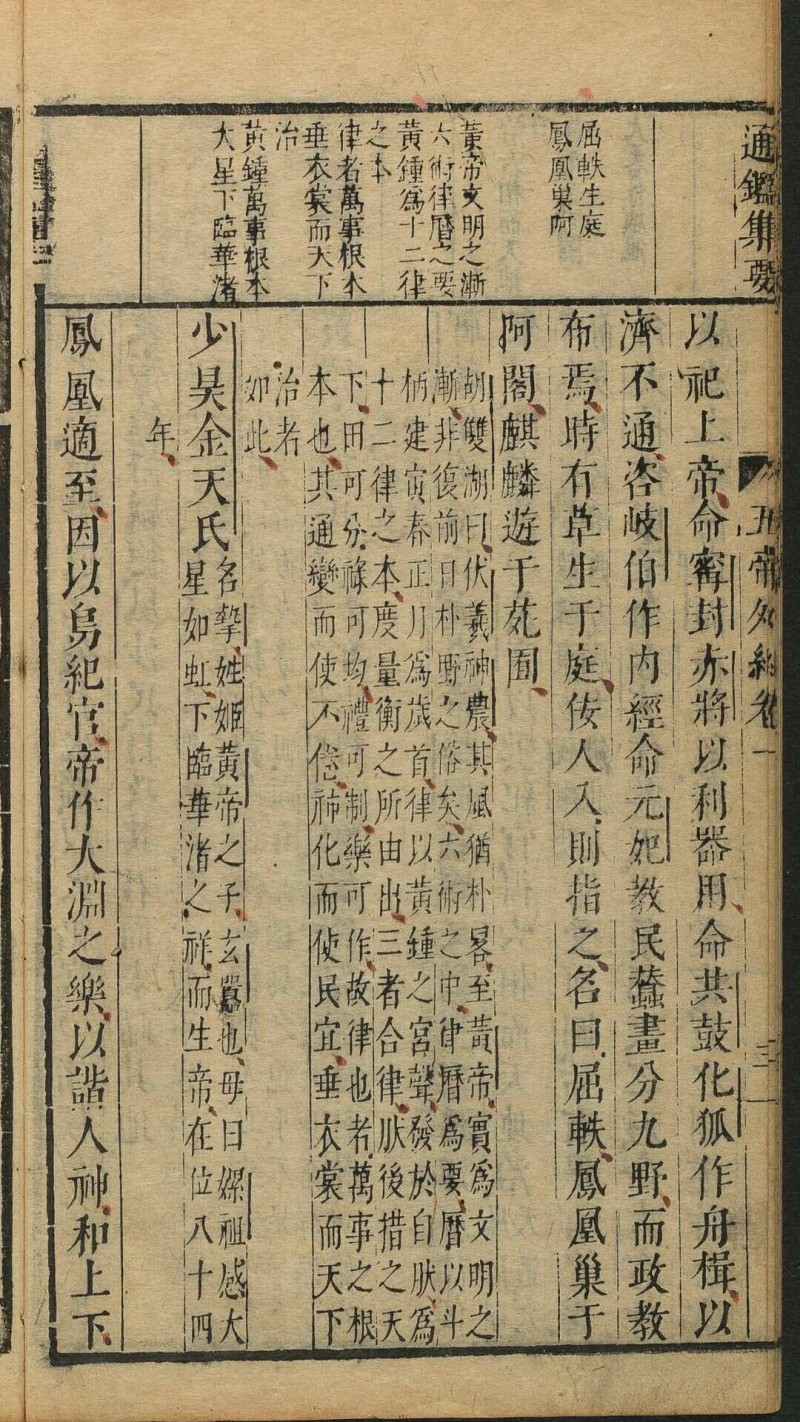 通鑑集要
五帝外紀卷一
三
屈軼生庭
鳳凰巢阿
黃帝文明之漸
六術律曆之要
黃鍾爲十二律
之本
律者萬事根本
垂衣裳而天下
治
黃鍾萬事根本
大星下臨華渚
以祀上帝命甯封赤將以利器用命共鼓化狐作舟楫以
濟不通咨岐伯作內經命元妃教民蠶畫分九野而政教
布焉時有草生于庭佞人入則指之名曰屈軼鳳凰巢于
阿閣麒麟遊于苑囿
胡雙湖曰伏羲神農其風猶朴畧至黃帝實爲文明之
漸非復前日朴野之俗矣六術之中律曆爲要曆以斗
柄建寅春正月爲歲首律以黃鍾之宮聲發於自肰爲
十二律之本度量衡之所由出三者合律肰後措之天
下田可分祿可均禮可制樂可作故律也者萬事之根
本也其通變而使不倦神化而使民宜垂衣裳而天下
治者
如此
少昊金天氏名摯姓姬黃帝之子玄囂也母曰嫘祖感大
星如虹下臨華渚之祥而生帝在位八十四
年
鳳凰適至因以鳥紀官帝作大淵之樂以諧人神和上下